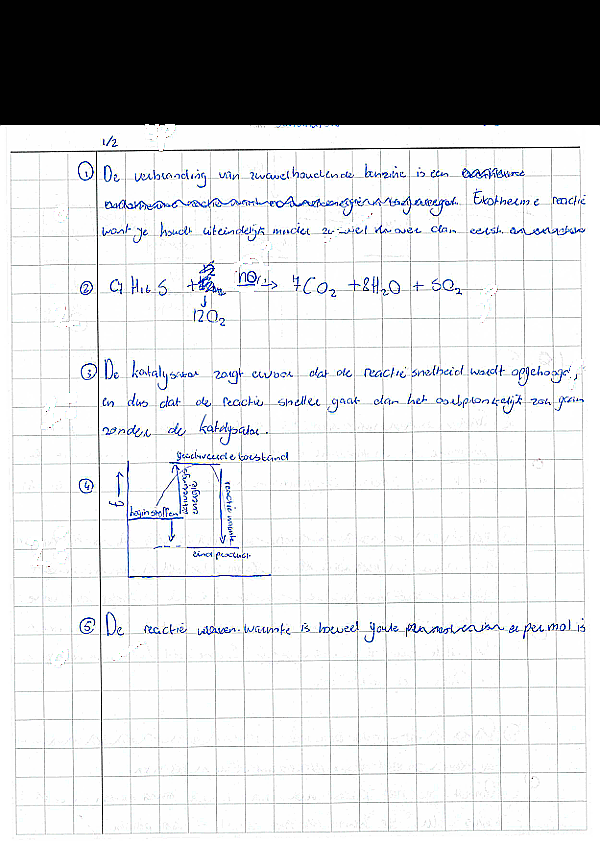 1/2
① De verbranding van zwavelhoudende benzine is een Exotherme reactie
want je houdt uiteindelijk minder over dan eerst.
② C7 H16 S + 12 O2 → 7CO2 + 8H2O + SO2
③ De katalysator zorgt ervoor dat de reactie snelheid wordt opgehoogd,
en dus dat de reactie sneller gaat dan het oorspronkelijk zou gaan
zonder de katalysator.
④ geactiveerde toestand
E
beginstoffen
activerings
energie
reactie warmte
eind product
⑤ De reactie warmte is hoeveel joule er per mol is